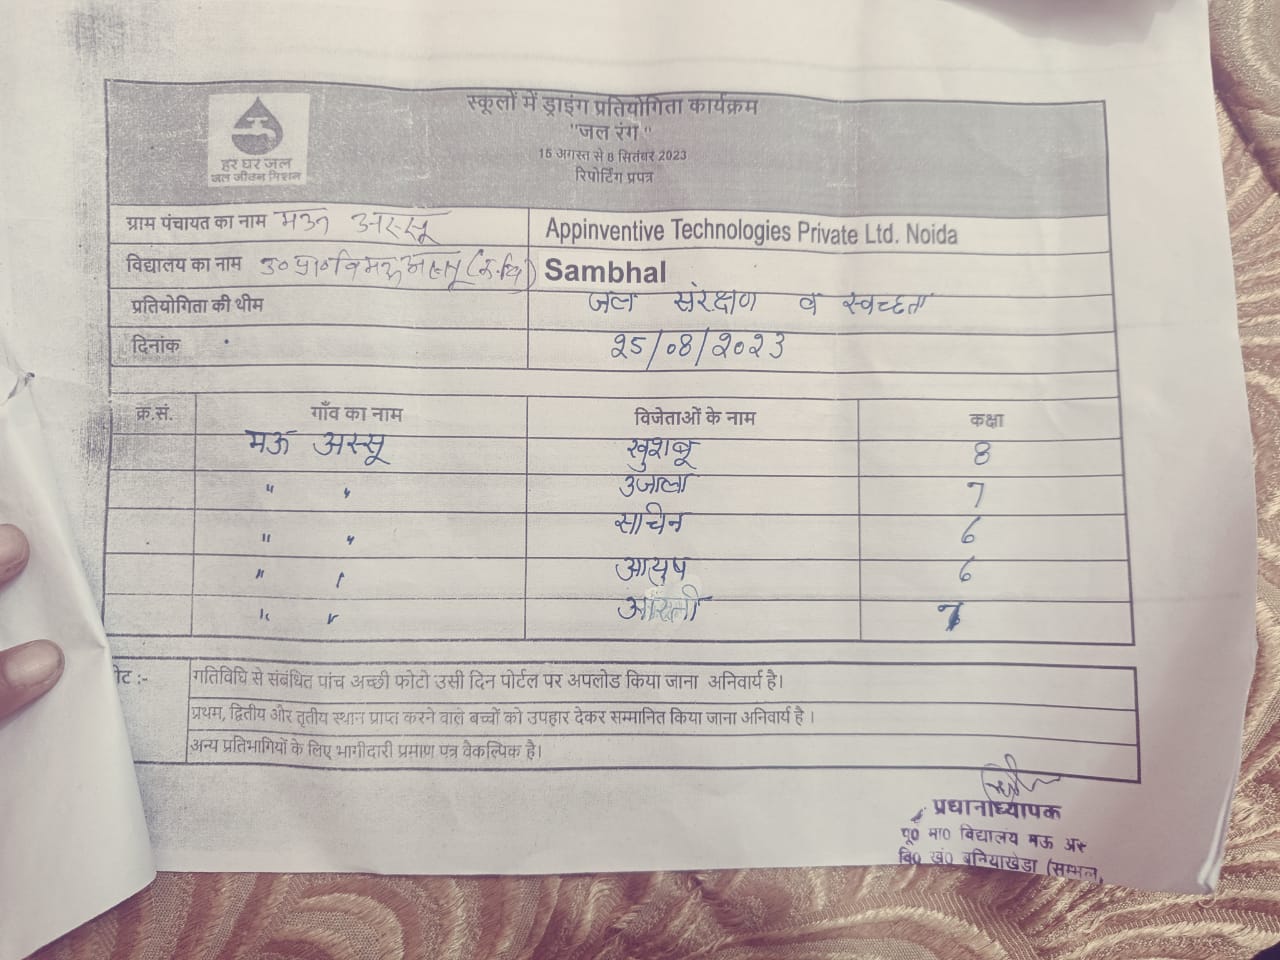 स्कूलों में ड्राइंग प्रतियोगिता कार्यक्रम
"जल रंग"
15 अगस्त से 8 सितंबर 2023
रिपोर्टिंग प्रपत्र
हर घर जल
जल जीवन मिशन
ग्राम पंचायत का नाम मऊ अस्सू Appinventive Technologies Private Ltd. Noida
विद्यालय का नाम उ० प्रा० वि मऊ अस्सू Sambhal
प्रतियोगिता की थीम जल संरक्षण व स्वच्छता
दिनांक 25/08/2023
क्र.सं. गाँव का नाम विजेताओं के नाम कक्षा
मऊ अस्सू खुशबू 8
" " उजाला 7
" " सचिन 6
" " आयुष 6
" " आरती 7
नोट :- गतिविधि से संबंधित पांच अच्छी फोटो उसी दिन पोर्टल पर अपलोड किया जाना अनिवार्य है।
प्रथम, द्वितीय और तृतीय स्थान प्राप्त करने वाले बच्चों को उपहार देकर सम्मानित किया जाना अनिवार्य है।
अन्य प्रतिभागियों के लिए भागीदारी प्रमाण पत्र वैकल्पिक है।
प्रधानाध्यापक
पू० मा० विद्यालय मऊ अस
वि० खं० बनियाखेडा (सम्भल